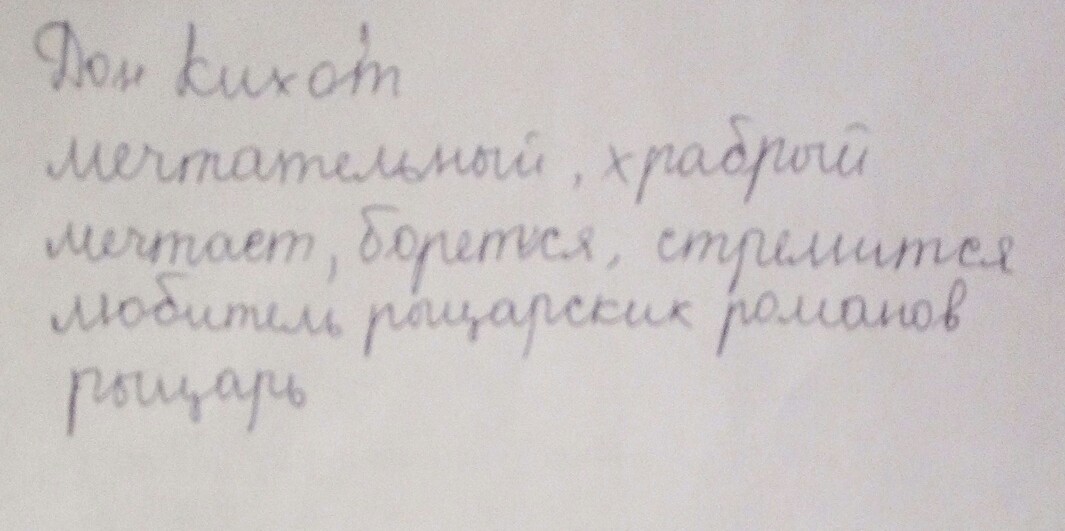 Дон Кихот
мечтательный, храбрый
мечтает, бореться, стремится
любитель рыцарских романов
рыцарь